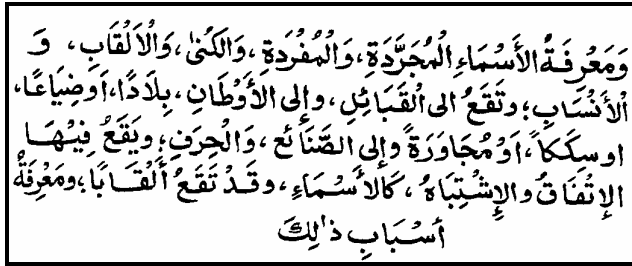 وَمَعْرِفَةُ الأَسْمَاءِ الْمُجَرَّدَةِ، وَالْمُفْرَدَةِ، وَالْكُنَىٰ، وَالْأَلْقَابِ، وَ
الْأَنْسَابِ؛ وتَقَعُ الى الْقَبَائِلِ، وإلى الأَوْطَانِ، بِلَادًا، اَوضِيَاعًا،
اوسِكَكاً، اَوْ مُجَاوَرَةً وإلى الصَّنَائِعِ، وَالْحِرَفِ؛ ويَقَعُ فِيْهَا
الإتْفَاقُ والإِشْتِبَاهُ، كَالأَسْمَاءِ، وقَدْ تَقَعُ أَلْقَابًا؛ ومَعْرِفَةُ
أَسْبَابِ ذٰلِكَ